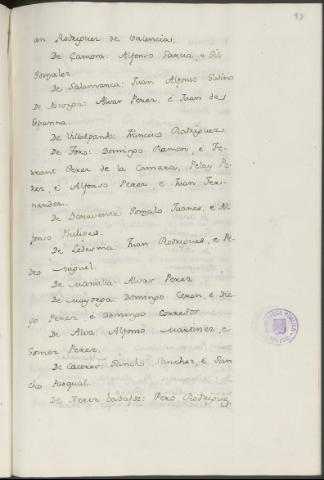 93
an Rodriguez de Valencia.
De Çamora: Alfonso Garcia, e Gil
Gonzalez
De Salamanca: Juan Alfonso Godino
De : Alvar Perez, e Juan de
Espanna.
De Villalpando: Francisco Rodriguez
De Toro: Domingo Ramon, e Fe-
rrant Perez de la Camara, Pelay Pe-
rez, e Alfonso Perez e Juan Fer-
nandez.
De Benavente Gonzalo Juanes, e Al
fonso Phelipes.
De Ledesma Juan Rodriguez, e Pe-
dro Miguel.
De Mansilla Alvar Perez
De Mayorga: Domingo , e Die
go Perez, e Domingo Corredor
De Alva Alfonso Martinez, e
Gomez Perez.
De Caceres: Sancho Sanchez, e San
cho Pasqual
De Xerez badajoz: Pero Rodriguez